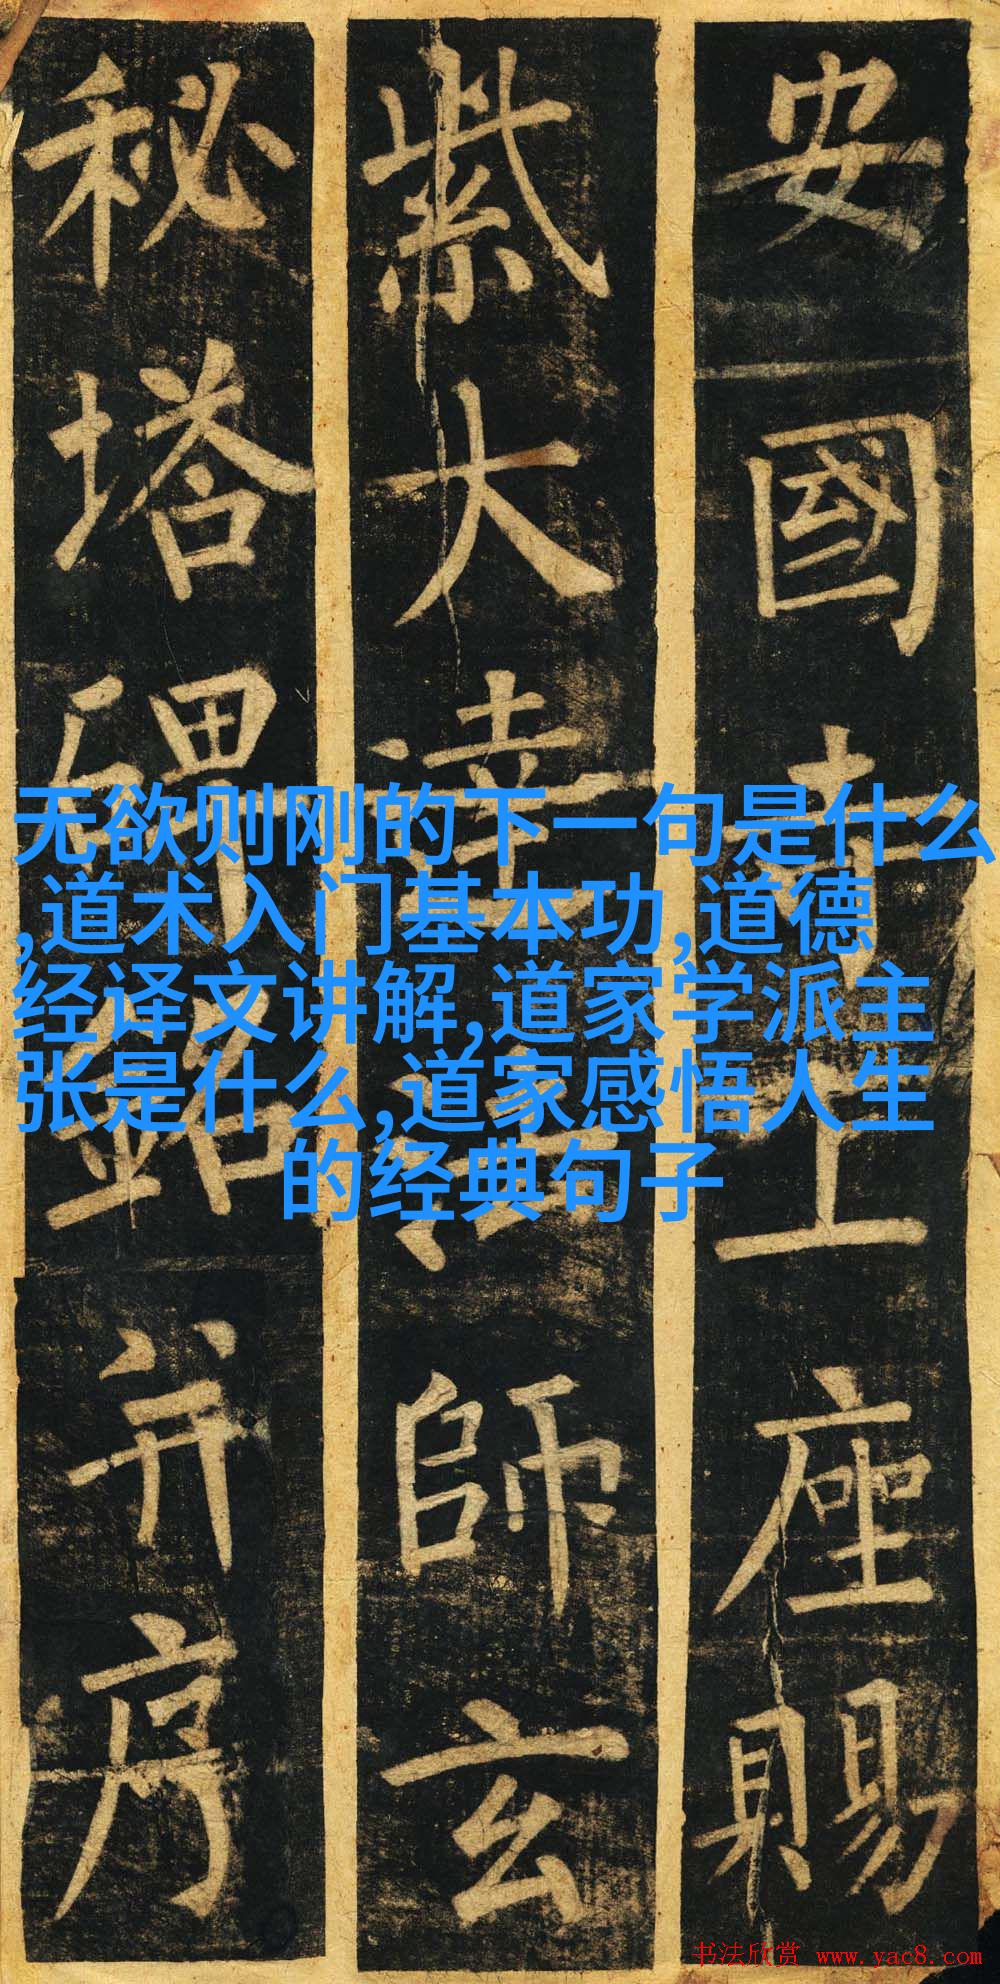 安國寺上座賜
紫大達法師玄
秘塔碑銘并序
无欲则刚的下一句是什么
,道术入门基本功,道德
经译文讲解,道家学派主
张是什么,道家感悟人生
的经典句子
书法欣赏 www.yac8.com